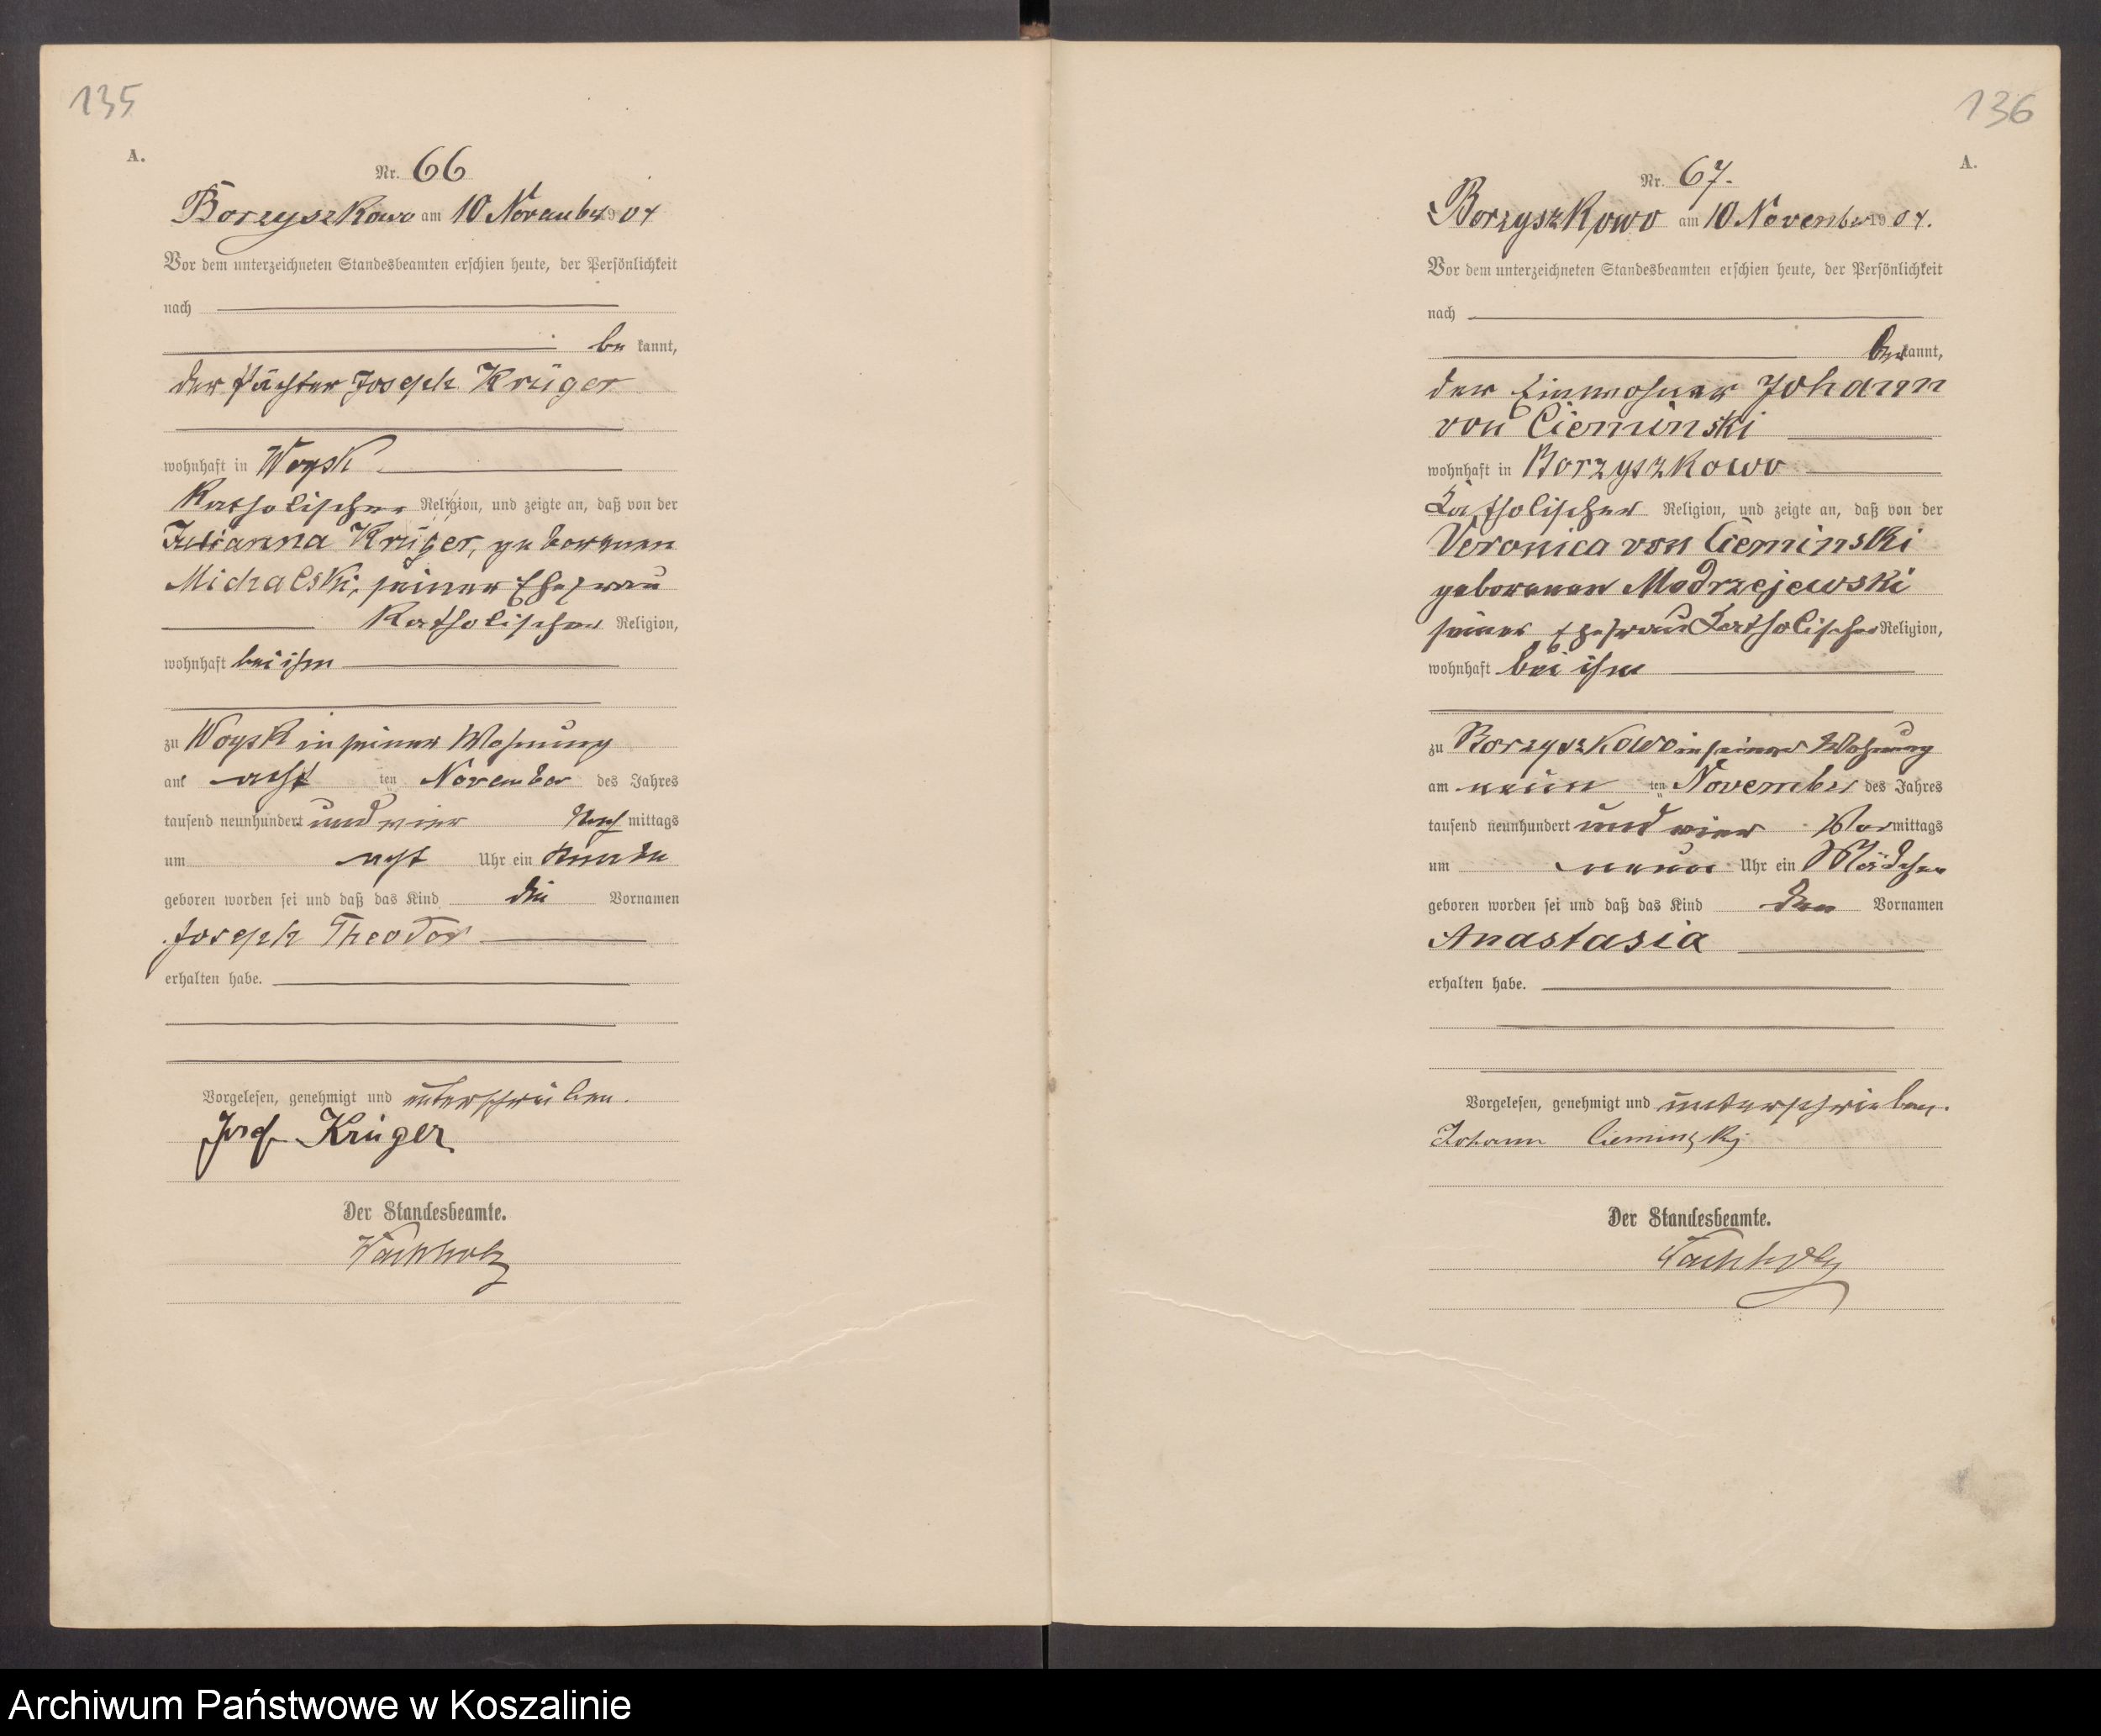 135
A.
Nr. 66
Borzyszkowo am 10 November 1904
Vor dem unterzeichneten Standesbeamten erschien heute, der Persönlichkeit
nach
be kannt,
der Pächter Joseph Krüger
wohnhaft in Woysk
katholischer Religion, und zeigte an, daß von der
Julianna Krüger, geborenen
Michalski, seiner Ehefrau
katholischer Religion,
wohnhaft bei ihm
zu Woysk in seiner Wohnung
am acht ten November des Jahres
tausend neunhundert und vier Nach mittags
um acht Uhr ein Knabe
geboren worden sei und daß das Kind die Vornamen
Joseph Theodor
erhalten habe.
Vorgelesen, genehmigt und unterschrieben.
Josef Krüger
Der Standesbeamte.
Wachholz
136
A.
Nr. 67.
Borzyszkowo am 10 November 1904.
Vor dem unterzeichneten Standesbeamten erschien heute, der Persönlichkeit
nach
be kannt,
der Einwohner Johann
von Cieminski
wohnhaft in Borzyszkowo
katholischer Religion, und zeigte an, daß von der
Veronica von Cieminski
geborenen Modrzejewski
seiner Ehefrau katholischer Religion,
wohnhaft bei ihm
zu Borzyszkowo in seiner Wohnung
am neun ten November des Jahres
tausend neunhundert und vier Vor mittags
um neun Uhr ein Mädchen
geboren worden sei und daß das Kind den Vornamen
Anastasia
erhalten habe.
Vorgelesen, genehmigt und unterschrieben.
Johann Cieminski
Der Standesbeamte.
Wachholz
Archiwum Państwowe w Koszalinie